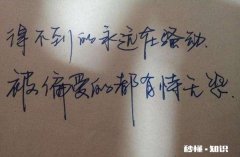 得不到的永远在骚动.
被偏爱的都有恃无恐.
秒懂·知识